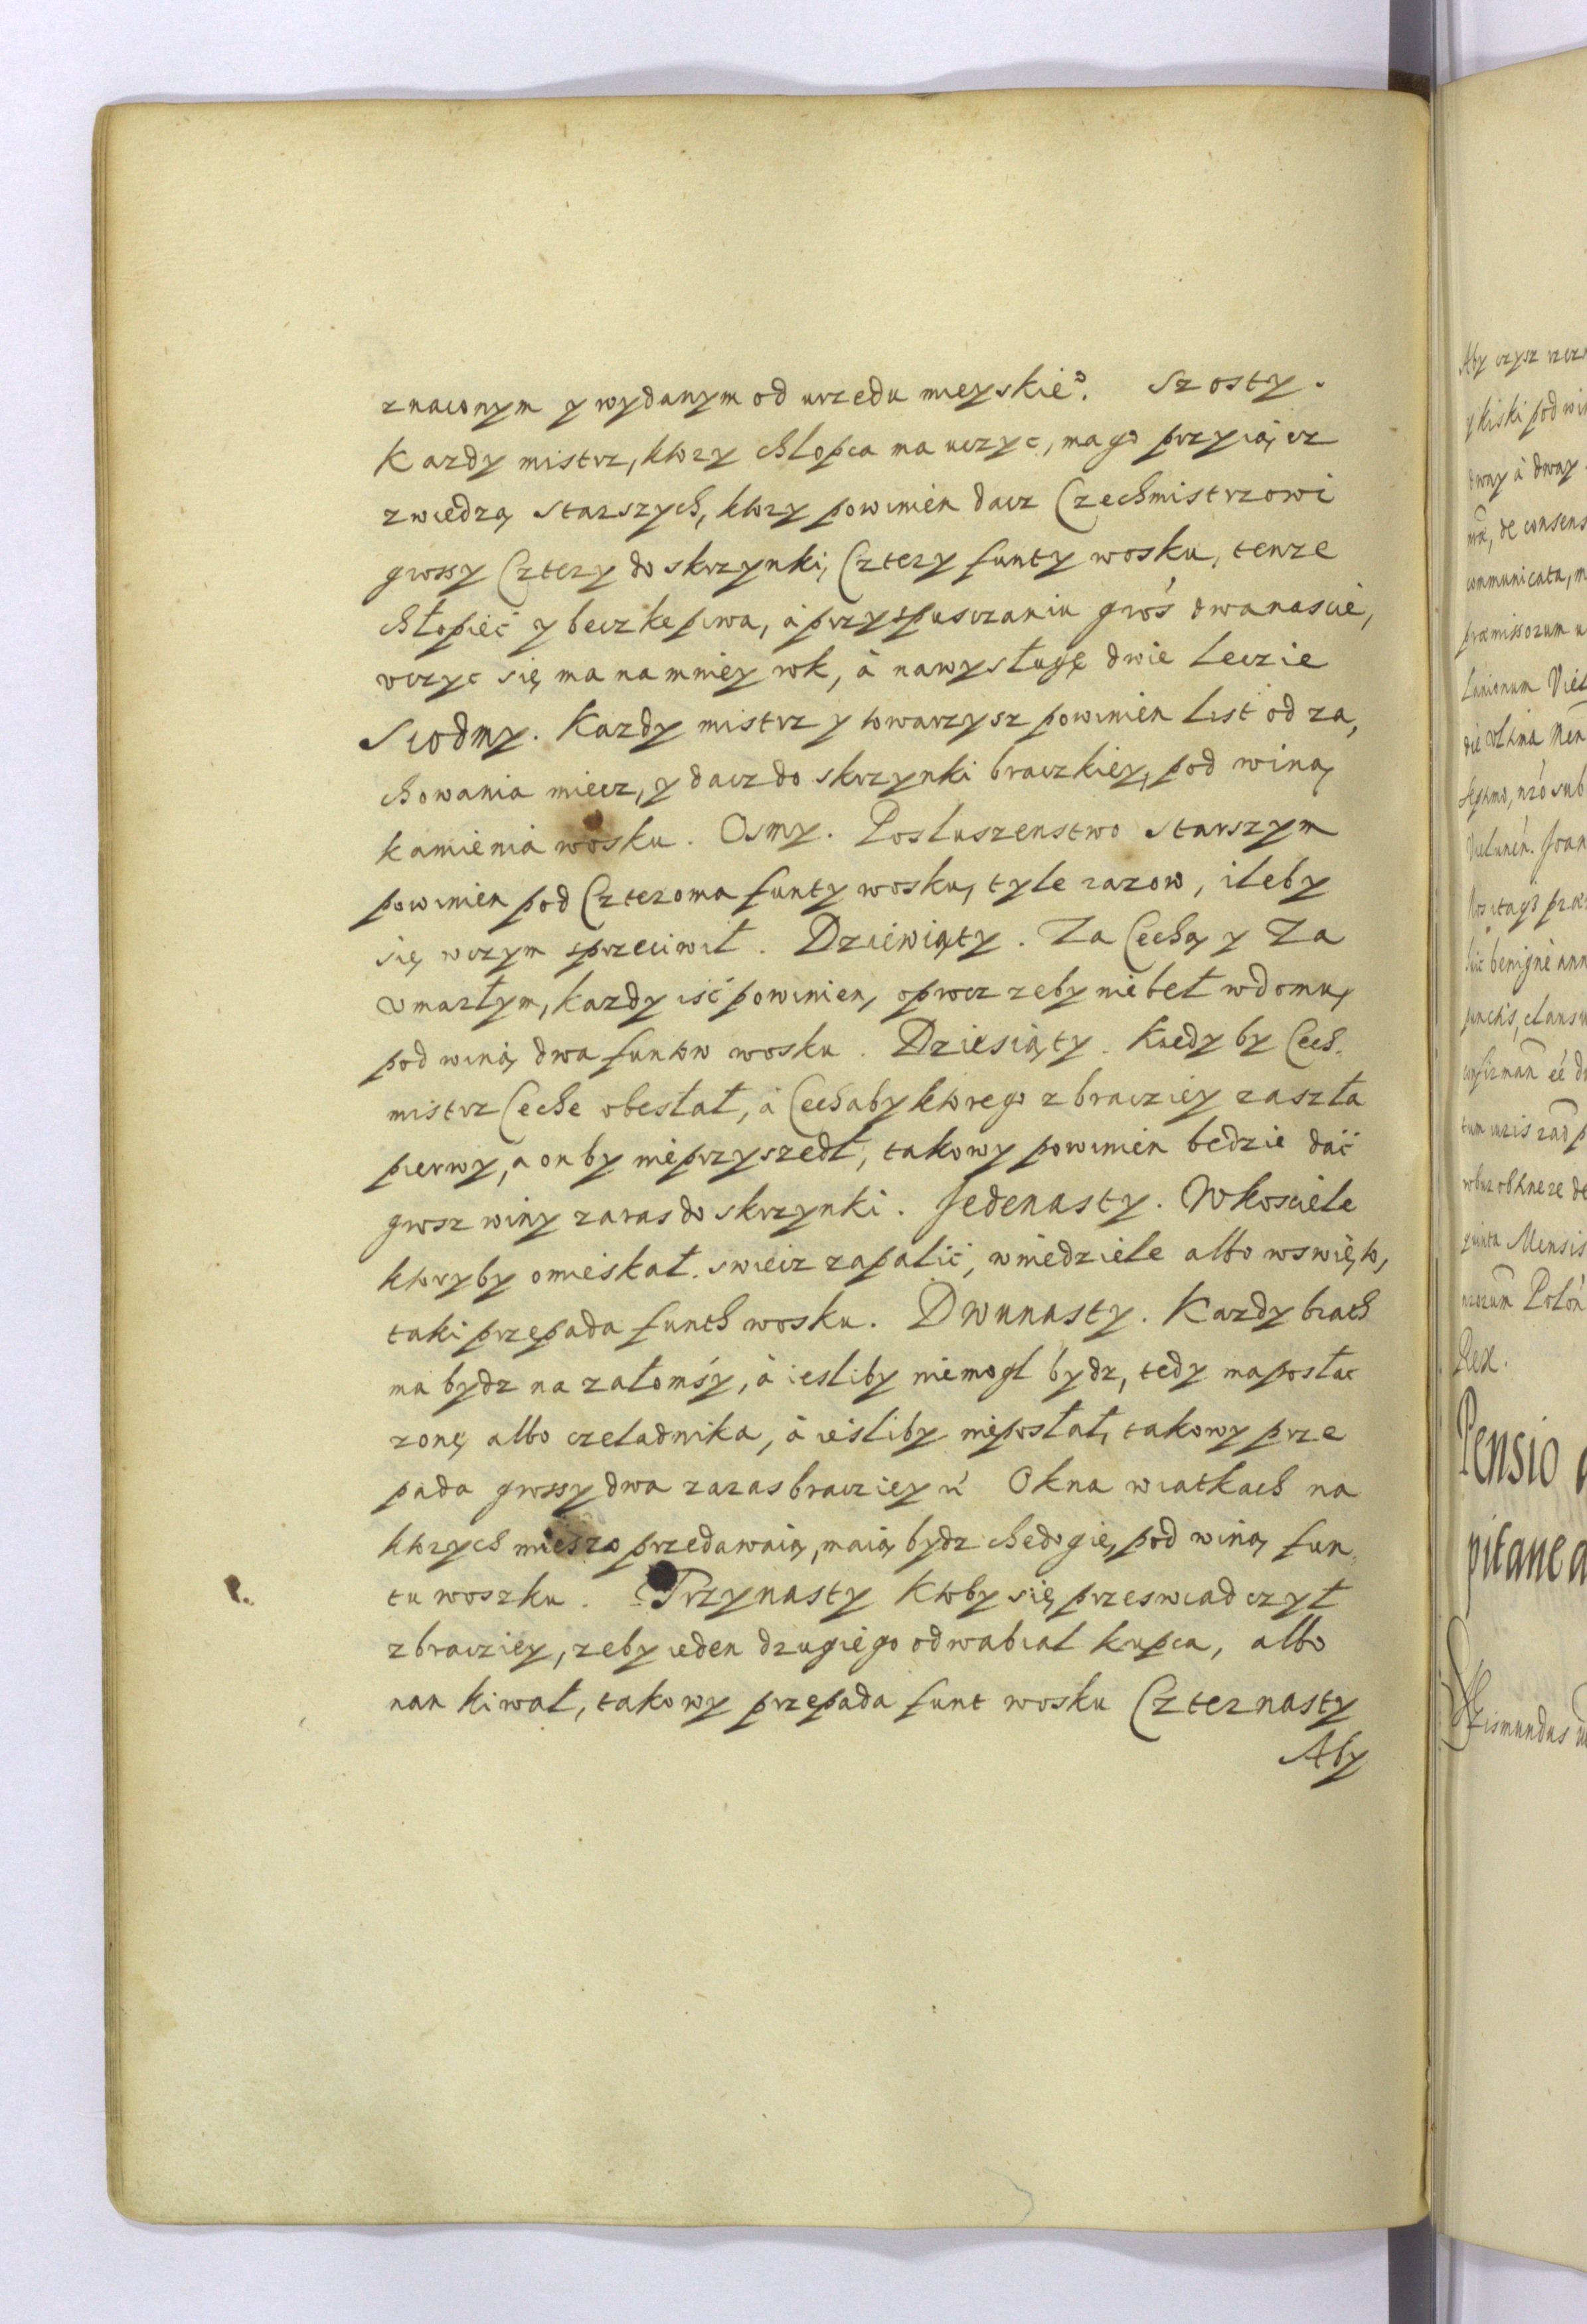 znaconym y wydanym od urzedu mieyskieº. Szosty.
Kazdy mistrz, ktory chlopca ma uczyc, ma go przyiącz
z wiedzą starszych, ktory powinien dacz Czechmistrzowi
grossy Cztery do skrzynki, Cztery funty wosku, tenze
chłopiec y beczke piwa, à przy spusczaniu groś dwanascie,
vczyc się ma na mniey rok, à na wysługę dwie lecie
Siodmy. Kazdy mistrz y towarzysz powinien list od za,
chowania miecz, y dacz do skrzynki braczkiey, pod winą
kamienia wosku. Osmy. Posluszenstwo starszym
powinien pod Czteroma funty wosku, tyle razow, ileby
się w czym sprzeciwił. Dziewiąty. Za Cechą y Za
vmarłym, kazdy iść powinien, oprocz zeby nie beł w domu,
pod winą dwa funtow wosku. Dziesiąty. Kiedy by Cech,
mistrz Ceche obesłał, à Cecha by ktorego z bracziey zaszła
pierwy, a on by nie przyszedł, takowy powinien bedzie dać
grosz winy zaras do skrzynki. Jedenasty. W kosciele
ktoryby omieskał swiecz zapalić, w niedziele albo w swięto,
taki przepada funth wosku. Dwunasty. Kazdy brath
ma bydz na załomśy, à iesliby nie mogł bydz, tedy ma posłac
zonę albo czeladnika, à ieśliby nie posłał, takowy prze
pada grossy dwa zaras bracziey Okna w iatkach na
ktorych mieszo przedawaią, maią bydz chedogie, pod winą fun,
tu woszku. Trzynasty Ktoby się przeswiadczył
z bracziey, zeby ieden drugiego odwabiał kupca, albo
nan kiwał, takowy przepada funt wosku Czternasty
Aby